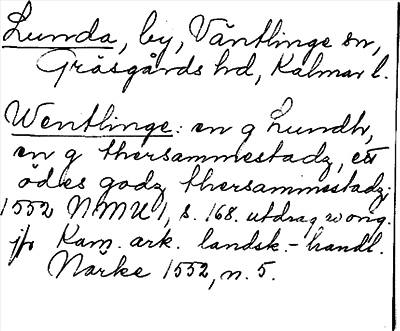 Lunda, by, Väntlinge sn,
Gräsgårds hd, Kalmar l.
Wentlinge: en g Lundh,
en g thersammestadz, ett
ödes godz thersammestadz;
1552 NMU 1, s. 168. utdrag w orig.
jfr Kam. ark. landsk.-handl.
Närke 1552, n. 5.